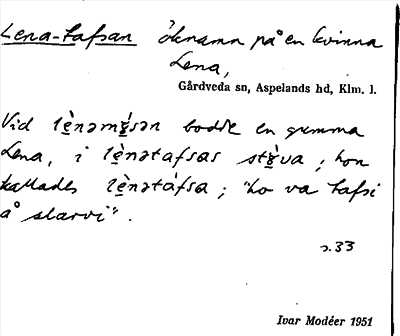 Lena-tafsan öknamn på en kvinna
Lena,
Gårdveda sn, Aspelands hd, Klm. l.
Vid lè̱nəmɤ́sən bodde en gumma
Lena, i lè̱nətafsas stɤ̀va ; hon
kallades lè̱nətáfsa ; "ho va tafsi
å slarvi".
s. 33
Ivar Modéer 1951